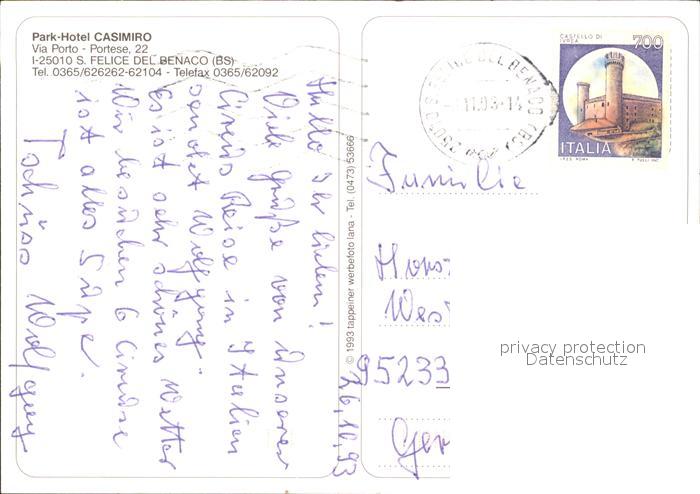 Park-Hotel CASIMIRO
Via Porto - Portese, 22
I-25010 S. FELICE DEL BENACO (BS)
Tel. 0365/626262-62104 - Telefax 0365/62092
Hallo Ihr lieben!
Viele grüße von unserer
Reise in Italien
sendet Wolfgang
Es ist sehr schönes Wetter
Wir besuchen 6
ist alles Supe.
Tschüss Wolfgang
26.10.93
© 1993 tappeiner werbefoto lana - Tel. (0473) 53666
S. FELICE DEL BENACO (BS)
CASTELLO DI IVREA
700
ITALIA
I.P.Z.S. ROMA
Familie
Hors
Wes
95233
Ger
privacy protection
Datenschutz